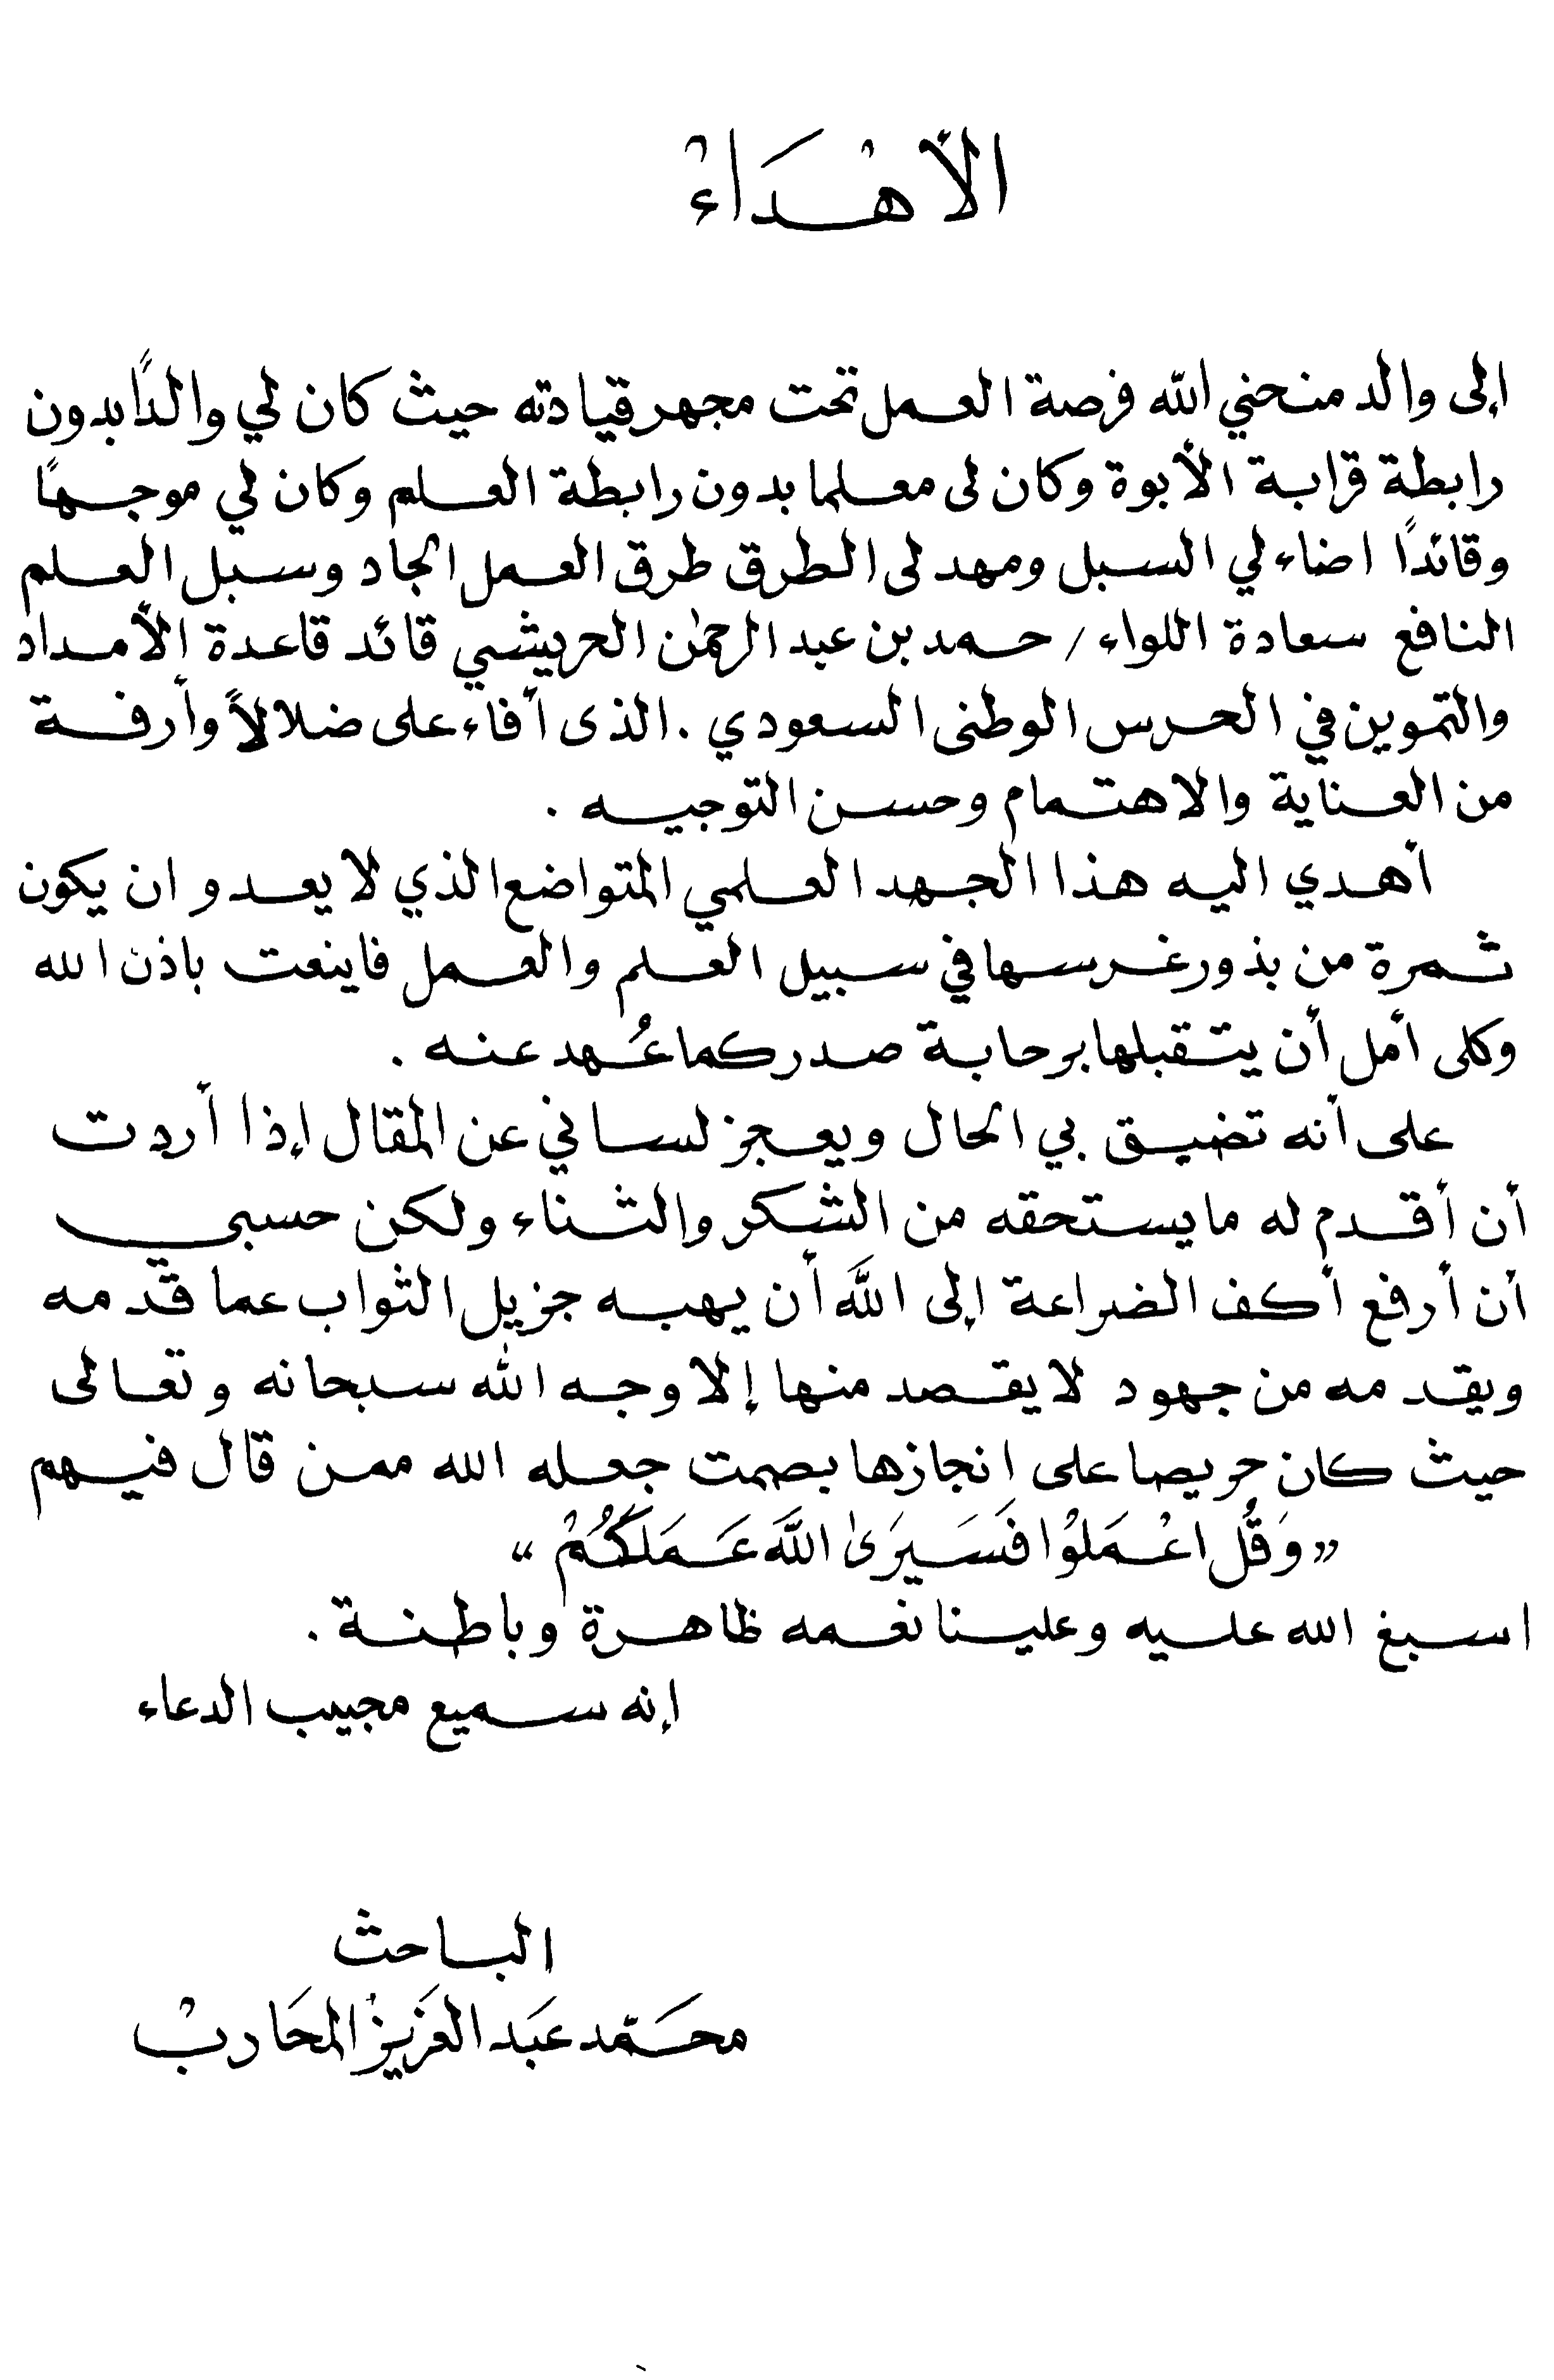 الأهْدَاءْ
إلى والد منحني الله فرصة العمل تحت مجهر قيادته حيث كان لي والدًا بدون
رابطة قرابة الأبوة وكان لى معلما بدون رابطة العلم وكان لي موجهًا
وقائدًا اضاء لي السبل ومهد لى الطرق طرق العمل الجاد وسبل العلم
النافع سعادة اللواء / حمد بن عبد الرحمٰن الحريشي قائد قاعدة الأمداد
والتموين في الحرس الوطنى السعودي . الذى أفاء على ضلالاً وأرفة
من العناية والاهتمام وحسن التوجيه .
أهدي اليه هذا الجهد العلمي المتواضع الذي لا يعدو ان يكون
ثمرة من بذور غرسها في سبيل العلم والعمل فاينعت باذن الله
وكلى أمل أن يتقبلها برحابة صدر كما عُهد عنه .
على أنه تضيق بي الحال ويعجز لساني عن المقال إذا أردت
أن أقدم له ما يستحقه من الشكر والثناء ولكن حسبي
أن أرفع أكف الضراعة إلى اللَّه أن يهبه جزيل الثواب عما قدمه
ويقدمه من جهود لا يقصد منها إلا وجه الله سبحانه وتعالى
حيث كان حريصا على انجازها بصمت جعله الله ممن قال فيهم
«وَقُل اعْمَلوْا فَسَيَرَىٰ اللَّهَ عَمَلَكُمْ»
اسبغ الله عليه وعلينا نعمه ظاهرة وباطنة .
إنه سميع مجيب الدعاء
الباحث
محَمّد عبَد العَزيزْ المحَاربْ